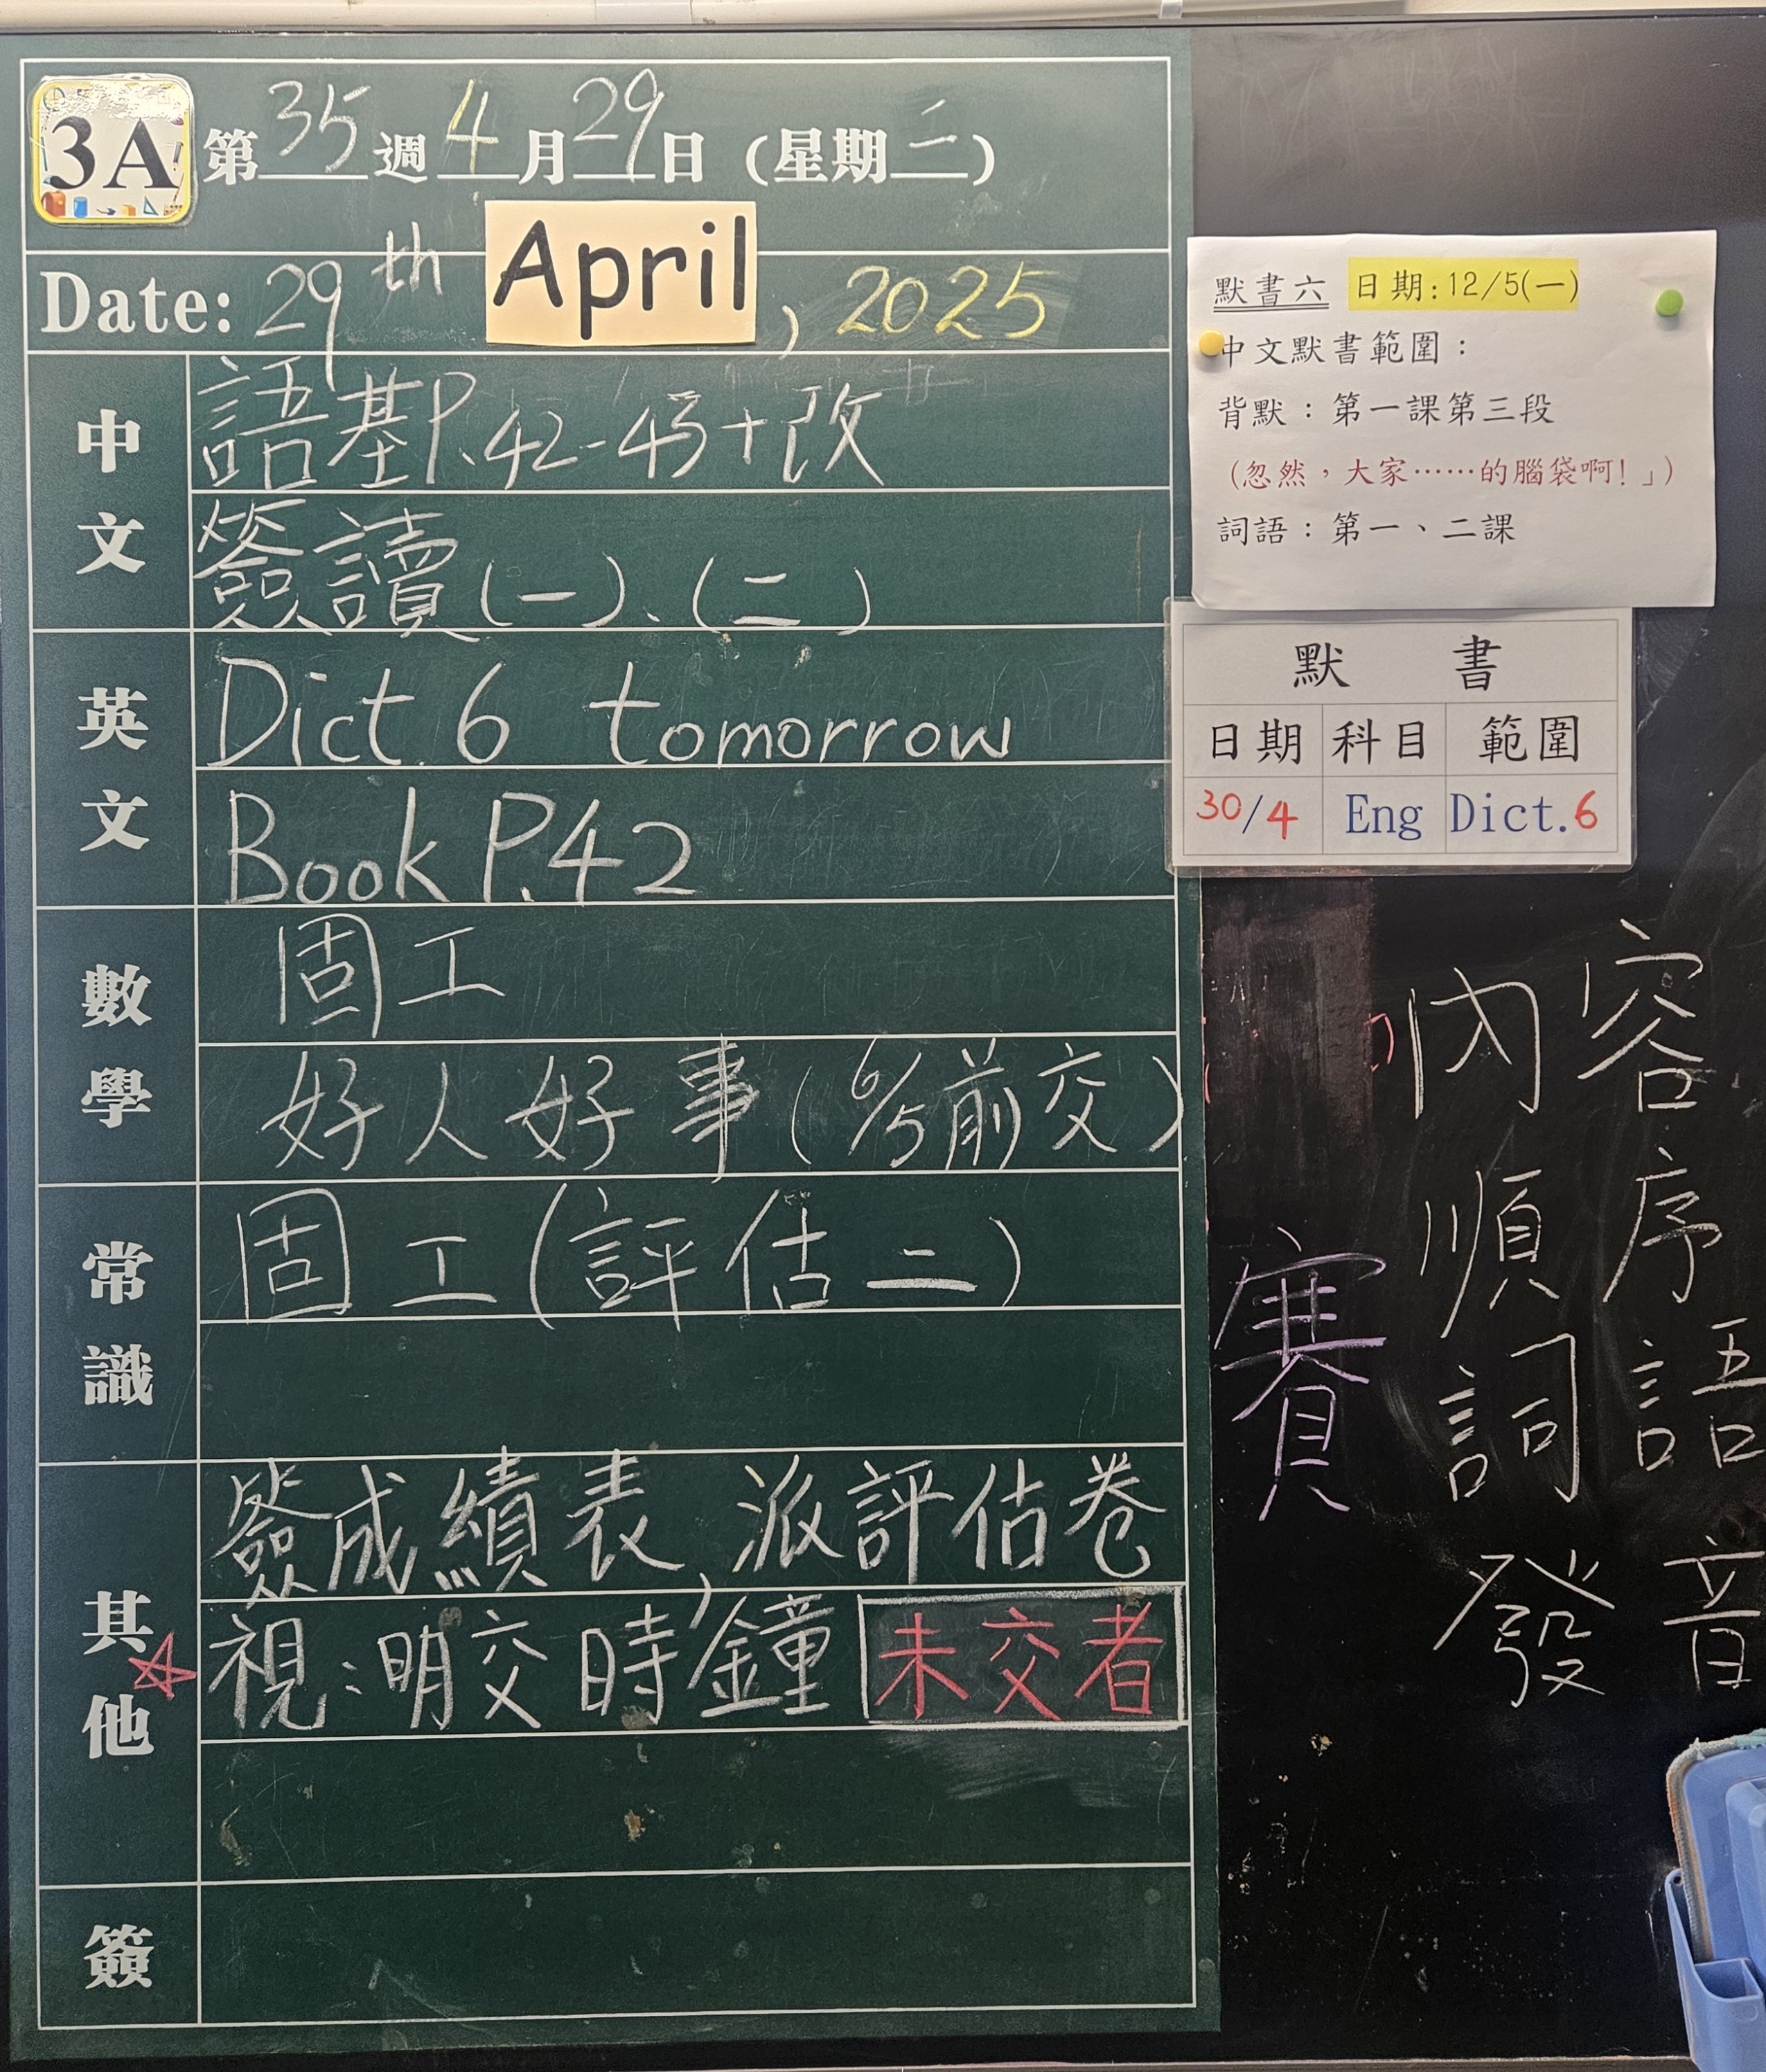 3A 第35週4月29日(星期二)
Date: 29th April, 2025
中文
語基P.42-43+改
簽讀(一)、(二)
英文
Dict. 6 tomorrow
Book P.42
數學
固工
好人好事(6/5前交)
常識
固工(評估二)
其他
簽成績表,派評估卷
☆視:明交時鐘 未交者
簽
默書六 日期:12/5(一)
中文默書範圍:
背默:第一課第三段
(忽然,大家……的腦袋啊!」)
詞語:第一、二課
默 書
日期 科目 範圍
30/4 Eng Dict.6
內容
順序
詞語
發音
賽